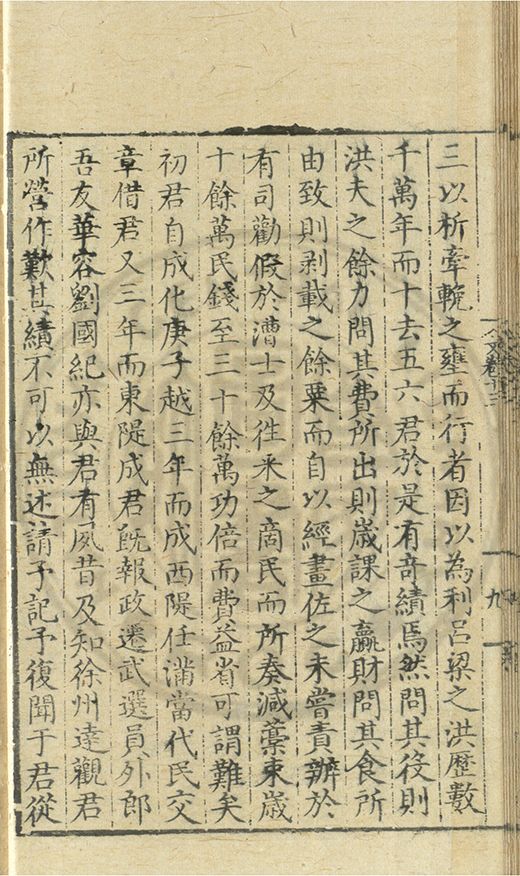 三以析牽輓之壅而行者因以為利呂梁之洪歷數
千萬年而十去五六君於是有奇績焉然問其役則
洪夫之餘力問其費所出則歲課之贏財問其食所
由致則剥載之餘粟而自以經畫佐之未嘗責辦於
有司勸假於漕士及徃来之商民而所奏減藁束歲
十餘萬民錢至三十餘萬功倍而費益省可謂難矣
初君自成化庚子越三年而成西隄任滿當代民交
章借君又三年而東隄成君旣報政遷武選員外郎
吾友華容劉國紀亦與君有夙昔及知徐州達觀君
所營作歎其績不可以無述請予記予復聞于君從
九